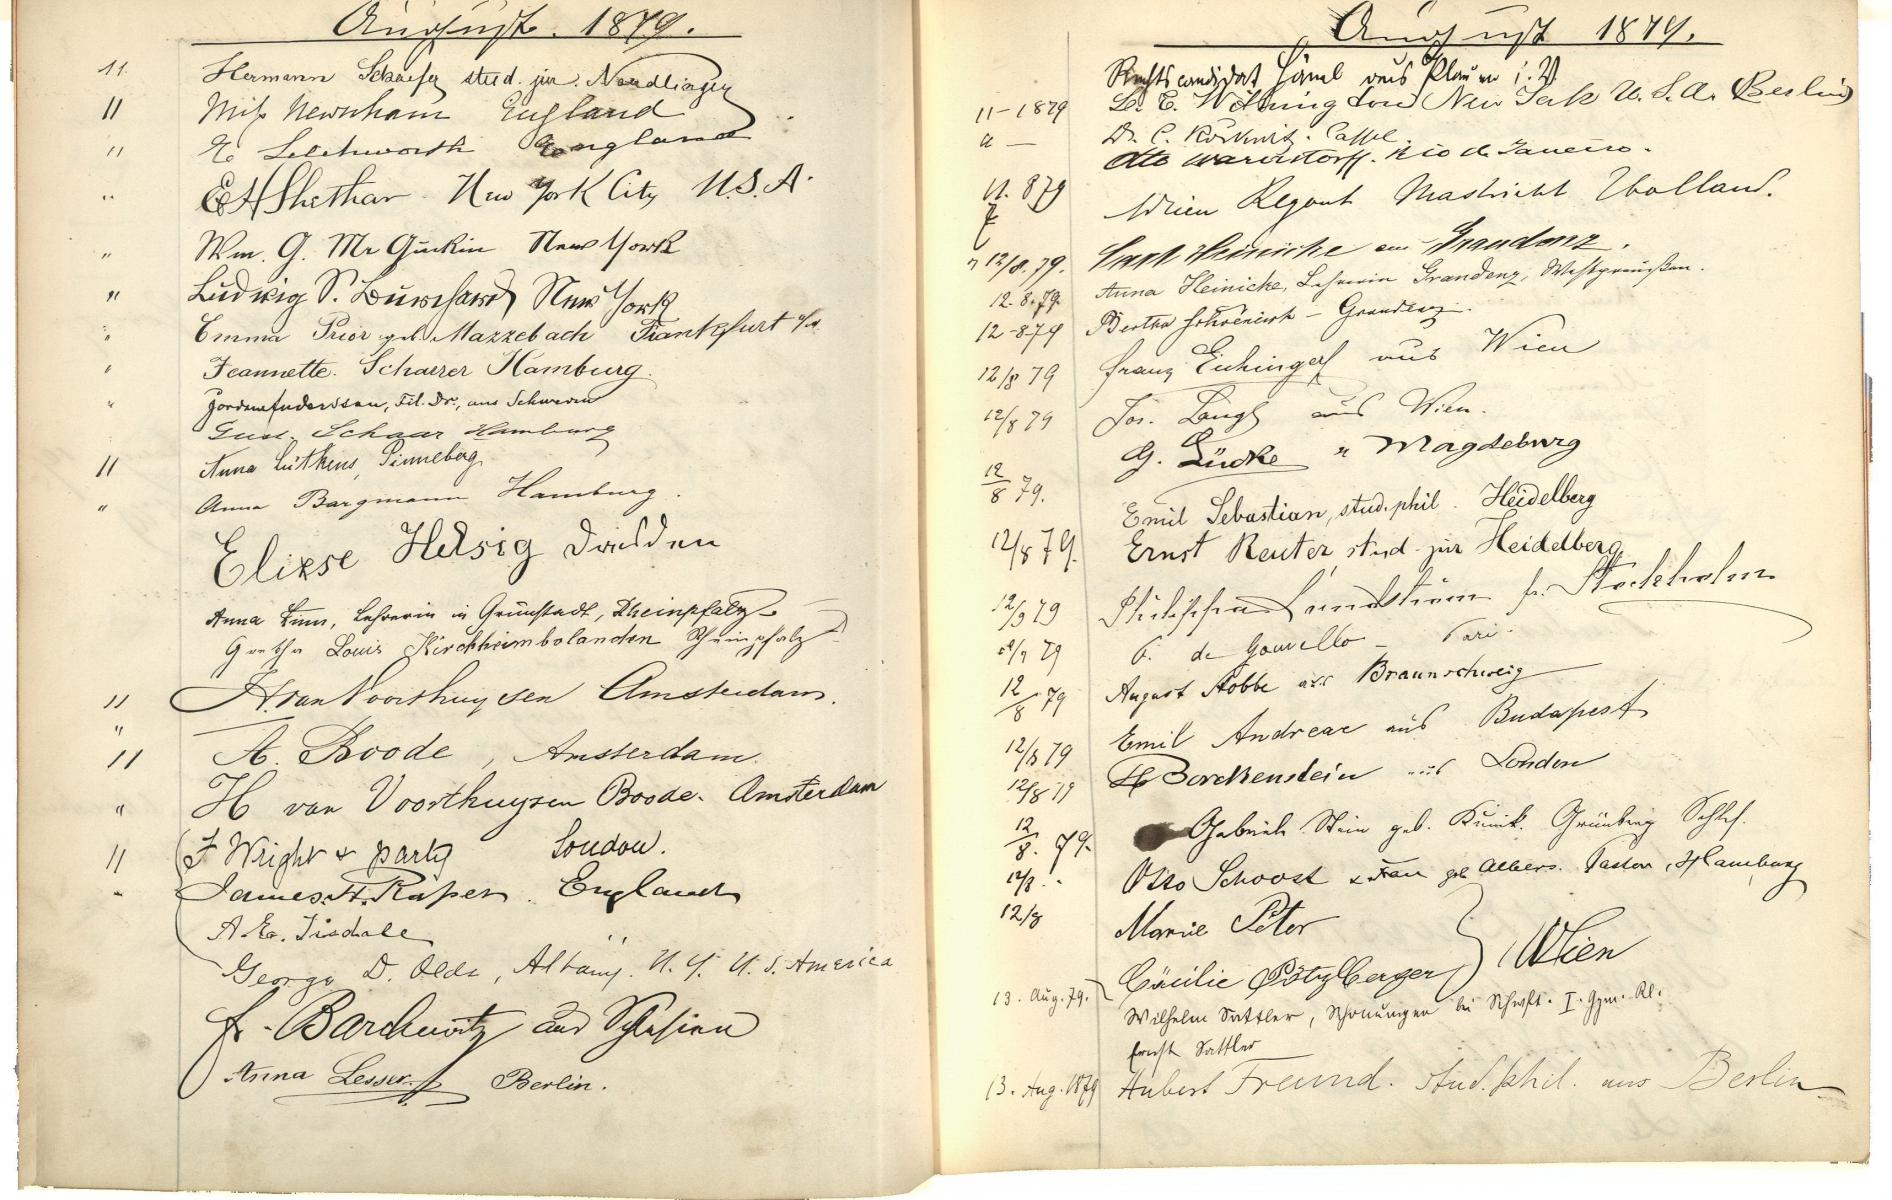 August. 1879.
11. Hermann Schaefer stud. jur. Nördlingen
11 Miss Newnham England
11 E Letchworth England
" E H Shethar New York City U.S.A.
" Wm. G. McGuckin New York
" Ludwig S. Burchard New York
" Emma Prior geb. Mazzebach Frankfurt a/M
" Jeannette Scharrer Hamburg.
" Fil. Dr., aus Schwerin
Gust. Schaar Hamburg
11 Anna Lütkens, Pinneberg
" Anna Bargmann Hamburg.
Eliese Helsig Dresden
Anna Lehrerin in Grünstadt, Rheinpfalz
Gretha Louis Kirchheimbolanden Rheinpfalz
11 H. van Voorthuysen Amsterdam.
"
11 A. Boode, Amsterdam.
" H van Voorthuysen Boode. Amsterdam
11 F Wright & party London.
" James H. Raper. England
A. E. Tisdale
George D. Olds, Albany. N. Y. U. S. America
fr. Barchewitz aus Schlesien
Anna Lesser. Berlin.
August 1879.
Rechtscandidat Hänel aus Plauen i. V.
11-1879 New York U. S. A. (Berlin)
a — Dr. C. Cassel.
Otto Warnstorff. Rio de Janeiro.
11. 879 Adrien Regout Mastricht Holland.
" 12/8. 79. Carl Heinicke aus Graudenz.
12. 8. 79. Anna Heinicke, Lehrerin Graudenz, Westpreußen.
12-879 Bertha Graudenz.
12/8 79 Franz Eichinger aus Wien
12/8 79 Jos. Langl aus Wien.
G. Lücke " Magdeburg
12/8 79. Emil Sebastian, stud. phil. Heidelberg
12/8 79. Ernst Reuter, stud. jur Heidelberg
12/8 79 Philippa Lundström fr. Stockholm
12/8 79 de Gouvello Paris
12/8 79 August Stobbe aus Braunschweig
12/8 79 Emil Andreae aus Budapest
12/8 79 H Borckenstein aus London
12/8. 79. Gabriele Stein geb. Kunik. Grünberg Schles.
12/8. " Otto Schoost u. Frau geb Albers. Pastor, Hamburg
12/8 Marie Peter
Cäcilie Pötzlberger } Wien
13. Aug. 79. Wilhelm Sattler, Schonungen bei Schwft. I. Gym. Kl.
Ernst Sattler
13. Aug. 1879 Hubert Freund. stud. phil. aus Berlin